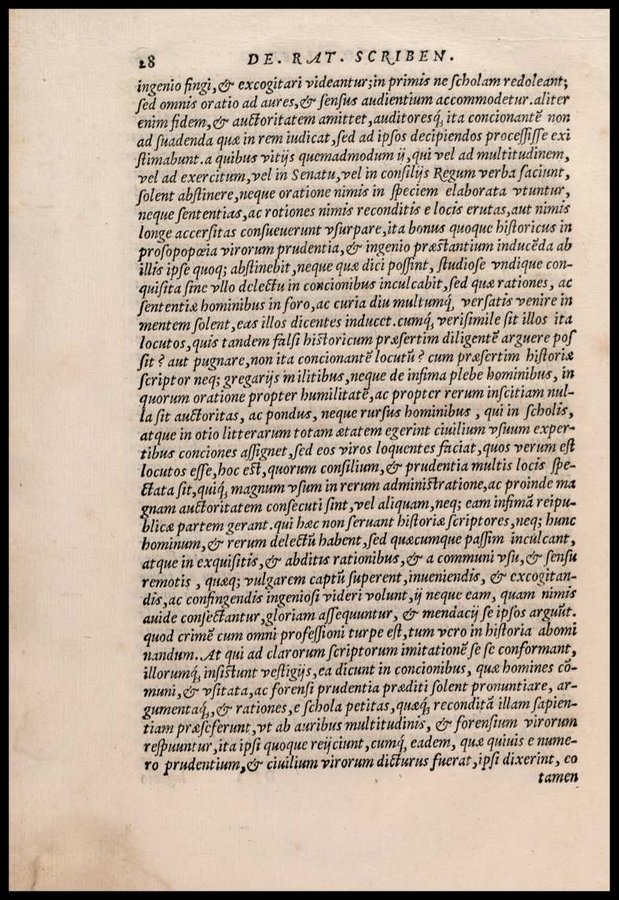 28 DE. RAT. SCRIBEN.
ingenio fingi,& excogitari videantur;in primis ne ſcholam redoleant;
ſed omnis oratio ad aures,& ſenſus audientium accommodetur.aliter
enim fidem,& auctoritatem amittet,auditoresq́; ita concionantẽ non
ad ſuadenda quæ in rem iudicat,ſed ad ipſos decipiendos proceſſiſſe exi
ſtimabunt.a quibus vitijs quemadmodum ij,qui vel ad multitudinem,
vel ad exercitum,vel in Senatu,vel in conſilijs Regum verba faciunt,
ſolent abſtinere,neque oratione nimis in ſpeciem elaborata vtuntur,
neque ſententias,ac rotiones nimis reconditis e locis erutas,aut nimis
longe accerſitas conſueuerunt vſurpare,ita bonus quoque hiſtoricus in
proſopopœia virorum prudentia,& ingenio præſtantium inducẽda ab
illis ipſe quoq; abſtinebit,neque quæ dici poſſint, ſtudioſe vndique con-
quiſita ſine vllo delectu in concionibus inculcabit,ſed quæ rationes, ac
ſententiæ hominibus in foro,ac curia diu multumq́; verſatis venire in
mentem ſolent,eas illos dicentes inducet.cumq́; veriſimile ſit illos ita
locutos,quis tandem falſi hiſtoricum præſertim diligentẽ arguere poſ
ſit? aut pugnare,non ita concionantẽ locutũ? cum præſertim hiſtoriæ
ſcriptor neq; gregarijs militibus,neque de infima plebe hominibus, in
quorum oratione propter humilitatẽ,ac propter rerum inſcitiam nul-
la ſit auctoritas, ac pondus, neque rurſus hominibus , qui in ſcholis,
atque in otio litterarum totam ætatem egerint ciuilium vſuum exper-
tibus conciones aſſignet,ſed eos viros loquentes faciat,quos verum eſt
locutos eſſe,hoc eſt,quorum conſilium,& prudentia multis locis ſpe-
ctata ſit,quiq́; magnum vſum in rerum adminiſtratione,ac proinde ma
gnam auctoritatem conſecuti ſint,vel aliquam,neq; eam infimã reipu-
blicæ partem gerant.qui hæc non ſeruant hiſtoriæ ſcriptores,neq; hunc
hominum,& rerum delectũ habent,ſed quæcumque paſſim inculcant,
atque in exquiſitis,& abditis rationibus,& a communi vſu,& ſenſu
remotis , quæq; vulgarem captũ ſuperent,inueniendis, & excogitan-
dis,ac confingendis ingenioſi videri volunt,ij neque eam, quam nimis
auide conſectantur,gloriam aſſequuntur, & mendacij ſe ipſos arguũt.
quod crimẽ cum omni profeſſioni turpe eſt,tum vero in hiſtoria abomi
nandum. At qui ad clarorum ſcriptorum imitationẽ ſe ſe conformant,
illorumq́; inſiſtunt veſtigijs,ea dicunt in concionibus, quæ homines cõ-
muni,& vſitata,ac forenſi prudentia præditi ſolent pronuntiare, ar-
gumentaq́;,& rationes,e ſchola petitas,quæq́; reconditã illam ſapien-
tiam præſeferunt,vt ab auribus multitudinis, & forenſium virorum
reſpuuntur,ita ipſi quoque reijciunt,cumq́; eadem, quæ quiuis e nume-
ro prudentium,& ciuilium virorum dicturus fuerat,ipſi dixerint, eo
tamen